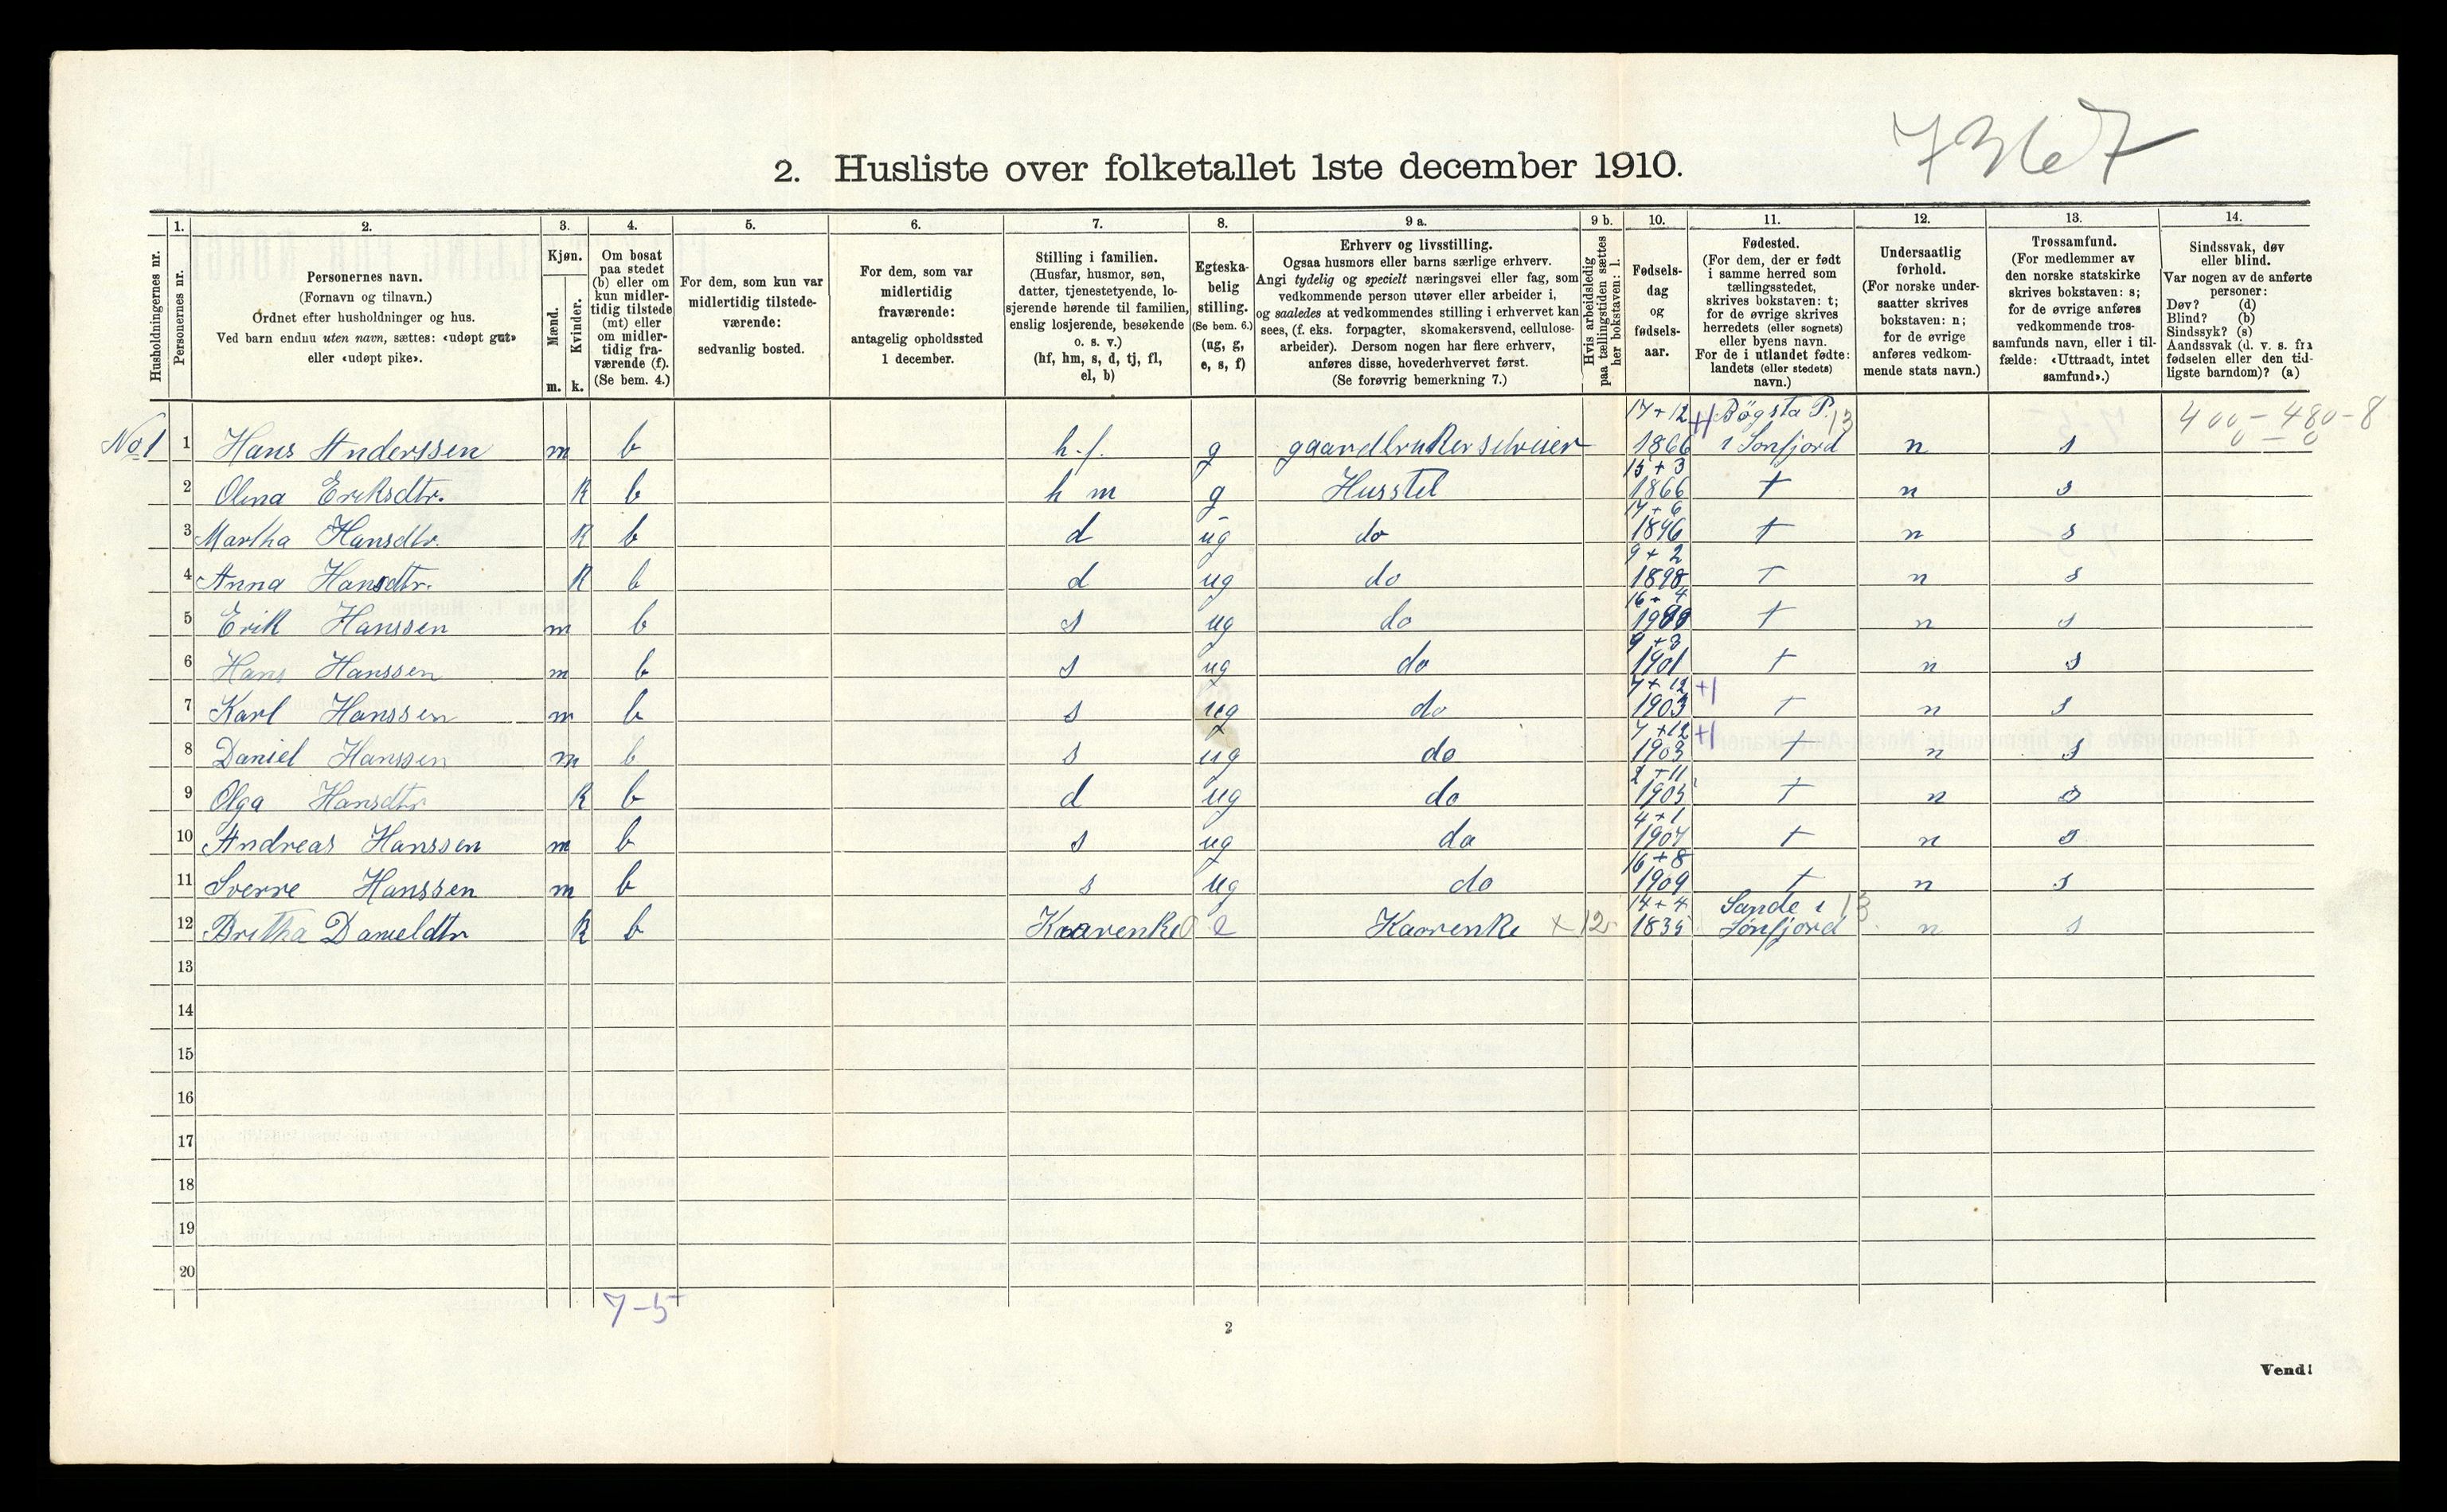 7367
2. Husliste over folketallet 1ste december 1910.
Husholdningernes nr.
1. Personernes nr.
2. Personernes navn. (Fornavn og tilnavn.) Ordnet efter husholdninger og hus. Ved barn endnu uten navn, sættes: «udøpt gut» eller «udøpt pike».
3. Kjøn. Mænd. m. Kvinder. k.
4. Om bosat paa stedet (b) eller om kun midlertidig tilstede (mt) eller om midlertidig fraværende (f). (Se bem. 4.)
5. For dem, som kun var midlertidig tilstedeværende: sedvanlig bosted.
6. For dem, som var midlertidig fraværende: antagelig opholdssted 1 december.
7. Stilling i familien. (Husfar, husmor, søn, datter, tjenestetyende, losjerende hørende til familien, enslig losjerende, besøkende o. s. v.) (hf, hm, s, d, tj, fl, el, b)
8. Egteskabelig stilling. (Se bem. 6.) (ug, g, e, s, f)
9 a. Erhverv og livsstilling. Ogsaa husmors eller barns særlige erhverv. Angi tydelig og specielt næringsvei eller fag, som vedkommende person utøver eller arbeider i, og saaledes at vedkommendes stilling i erhvervet kan sees, (f. eks. forpagter, skomakersvend, cellulosearbeider). Dersom nogen har flere erhverv, anføres disse, hovederhvervet først. (Se forøvrig bemerkning 7.)
9 b. Hvis arbeidsledig paa tællingstiden sættes her bokstaven: l.
10. Fødselsdag og fødselsaar.
11. Fødested. (For dem, der er født i samme herred som tællingsstedet, skrives bokstaven: t; for de øvrige skrives herredets (eller sognets) eller byens navn. For de i utlandet fødte: landets (eller stedets) navn.)
12. Undersaatlig forhold. (For norske undersaatter skrives bokstaven: n; for de øvrige anføres vedkommende stats navn.)
13. Trossamfund. (For medlemmer av den norske statskirke skrives bokstaven: s; for de øvrige anføres vedkommende trossamfunds navn, eller i tilfælde: «Uttraadt, intet samfund».)
14. Sindssvak, døv eller blind. Var nogen av de anførte personer: Døv? (d) Blind? (b) Sindssyk? (s) Aandssvak (d. v. s. fra fødselen eller den tidligste barndom)? (a)
No 1 1 Hans Anderssen m b h.f. g gaardbruker selveier 17+12 1866 i Sønfjord 13 n s
2 Olina Eriksdtr. k b h m g Husstel 15+3 1866 t n s
3 Martha Hansdtr. k b d ug do 17+6 1896 t n s
4 Anna Hansdtr. k b d ug do 9+2 1898 t n s
5 Erik Hanssen m b s ug do 16+4 t n s
6 Hans Hanssen m b s ug do 1901 t n s
7 Karl Hanssen m b s ug do 7+12 1903 +1 t n s
8 Daniel Hanssen m b s ug do 7+12 1903 +1 t n s
9 Olga Hansdtr k b d ug do 2+11 1905 t n s
10 Andreas Hanssen m b s ug do 4+1 1907 t n s
11 Sverre Hanssen m b s ug do 16+8 1909 t n s
12 Britha Danieldtr k b Kaarenke e Kaarenke x 12 14+4 1835 Sande i Sønfjord 13 n s
13
14
15
16
17
18
19
20
7-5
2
Vend!